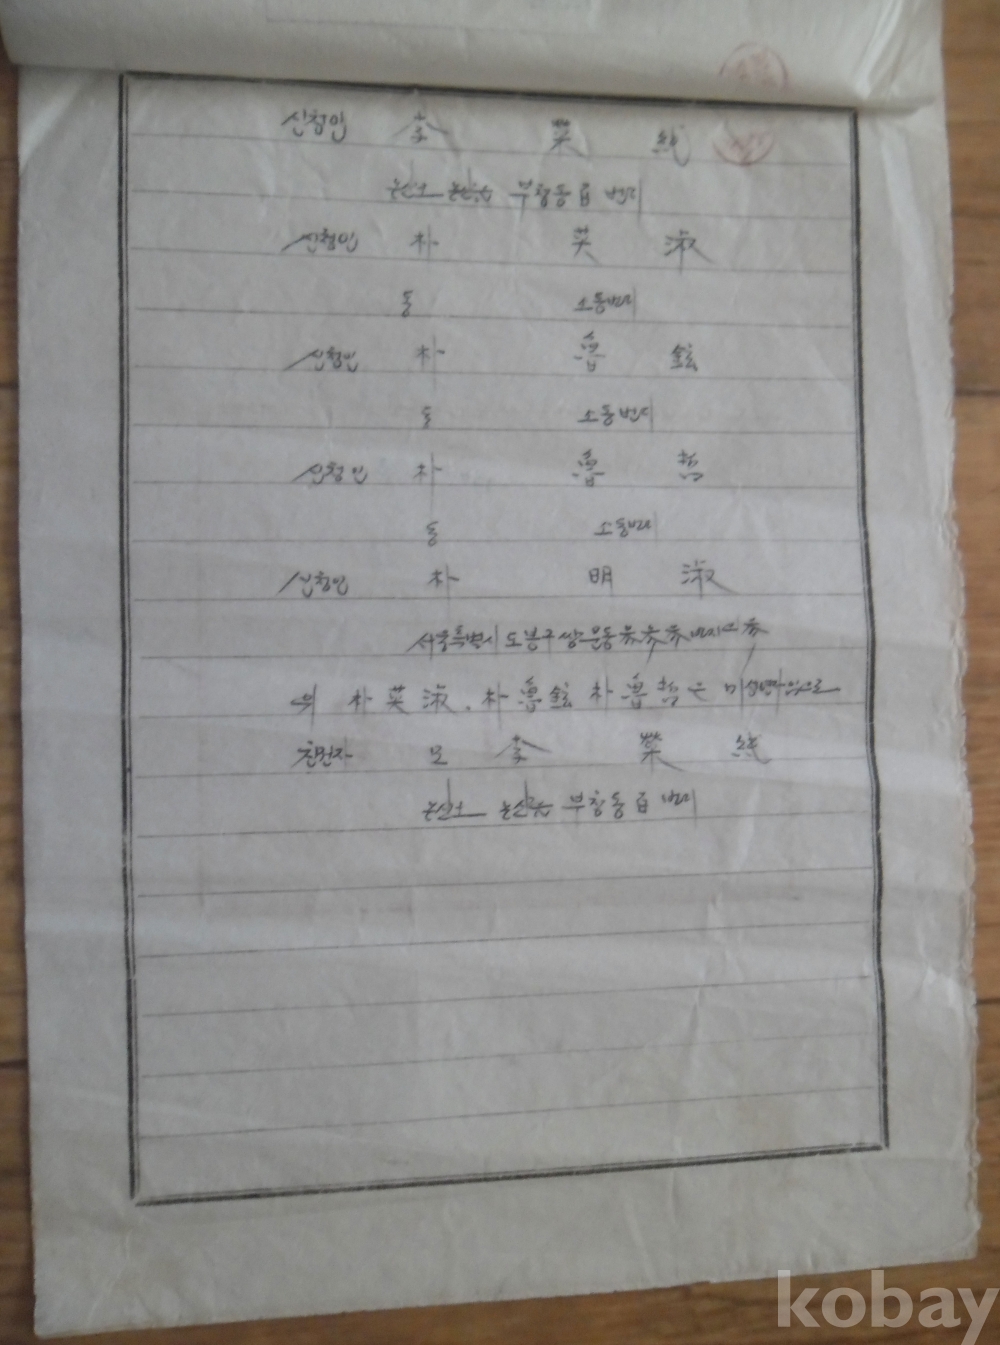 신청인 李 榮 純
논산군 논산읍 부창동 번지
신청인 朴 英 淑
동 소동번지
신청인 朴 魯 鉉
동 소동번지
신청인 朴 魯 哲
동 소동번지
신청인 朴 明 淑
서울특별시 도봉구 쌍문동
위 朴英淑、朴魯鉉 朴魯哲는 미성년자이므로
친권자 모 李 榮 純
논산군 논산읍 부창동 번지
kobay